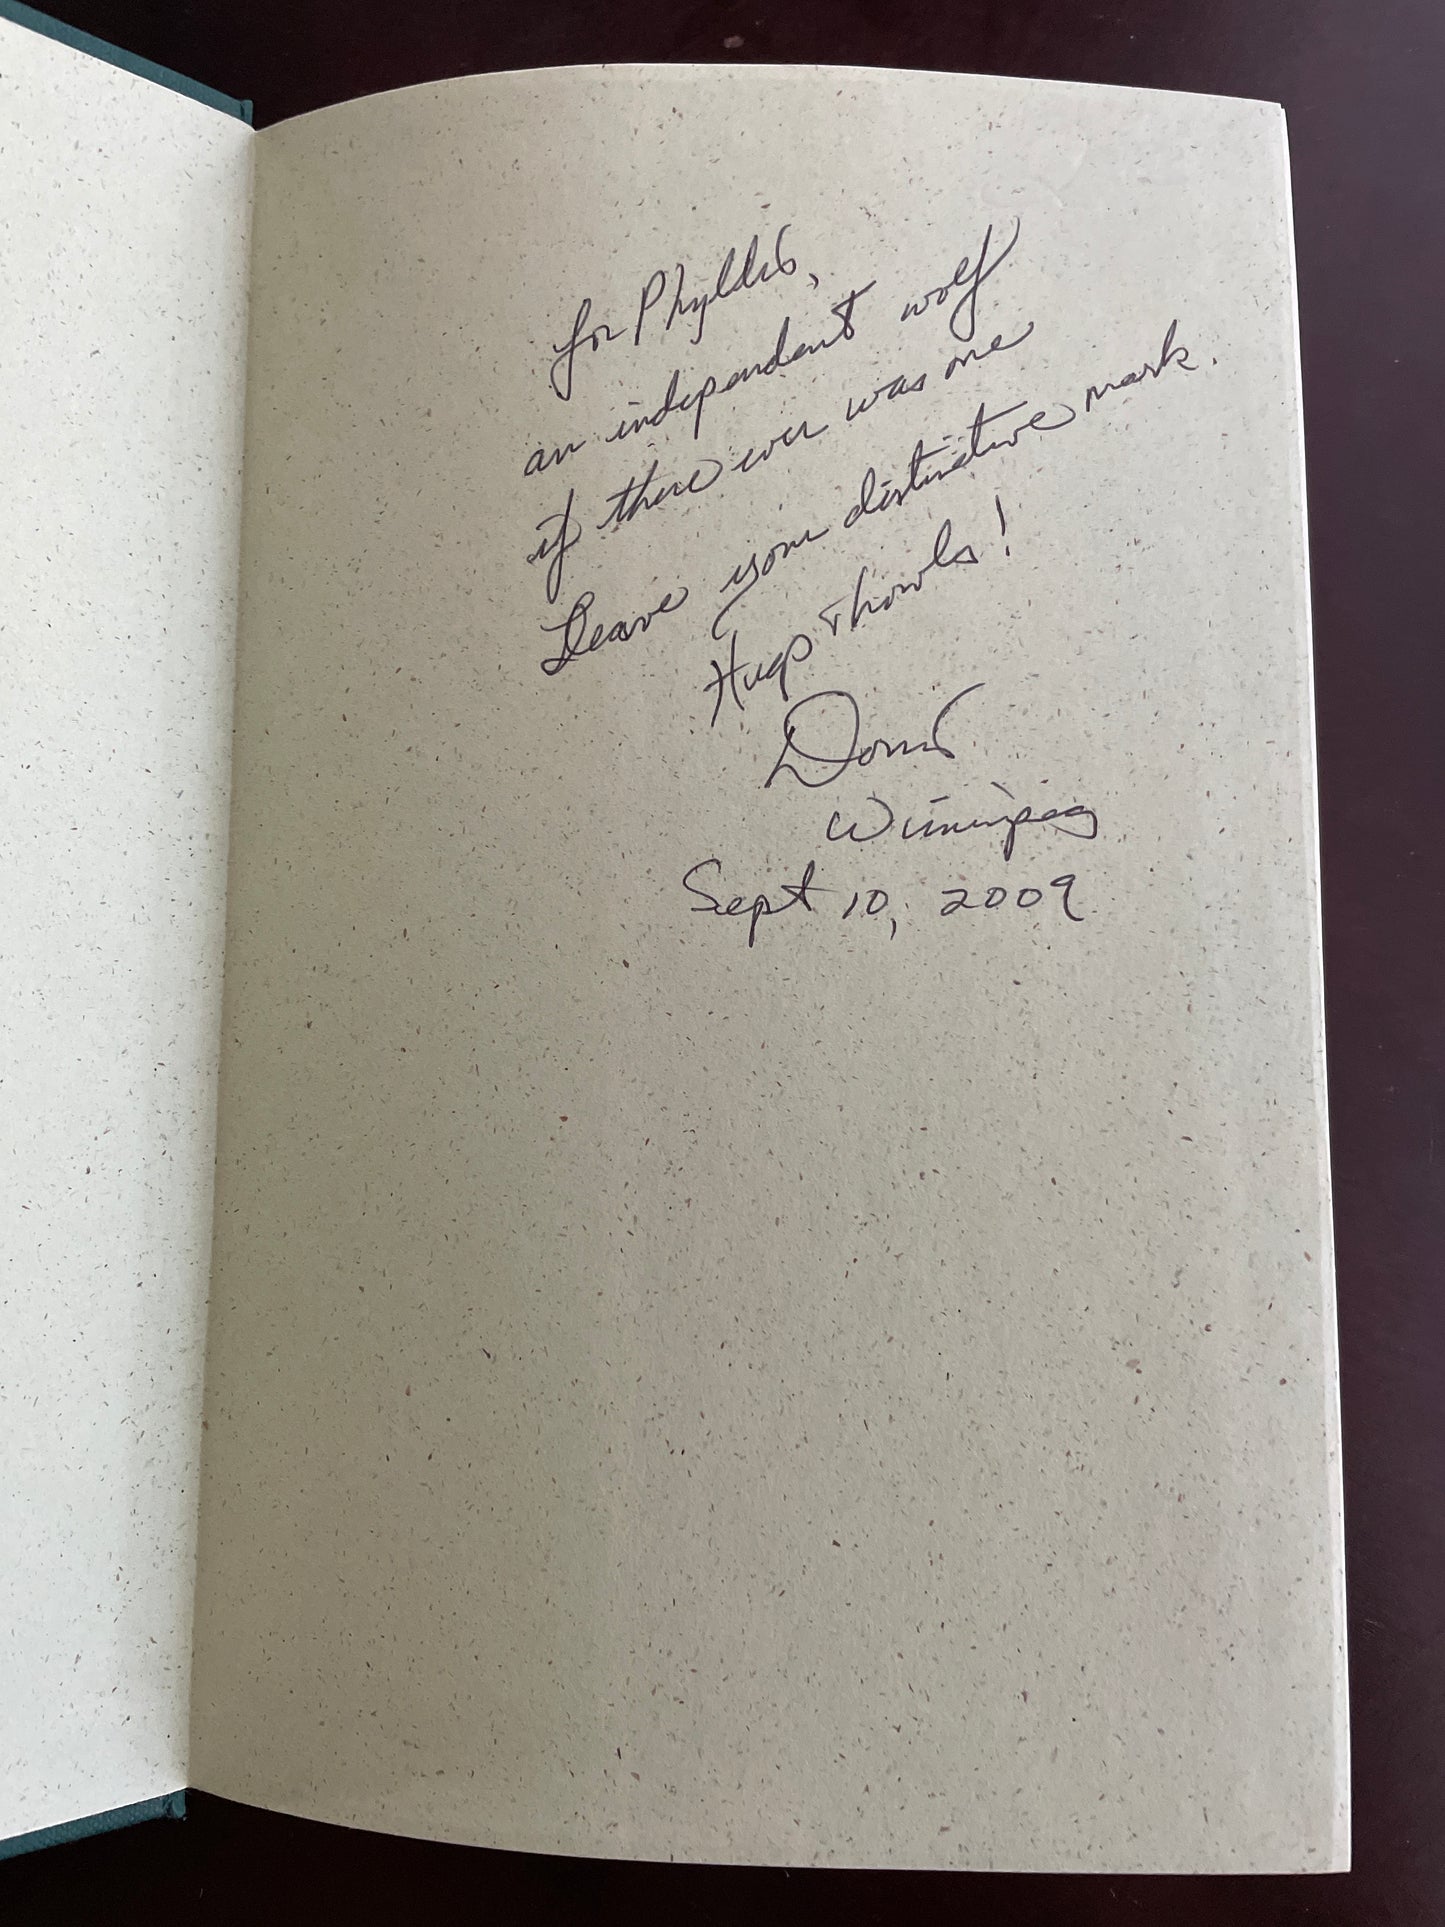 for Phyllis,
an independent wolf
if there ever was one
Leave your distinctive mark.
Hugs & howls!
Winnipeg
Sept 10, 2009